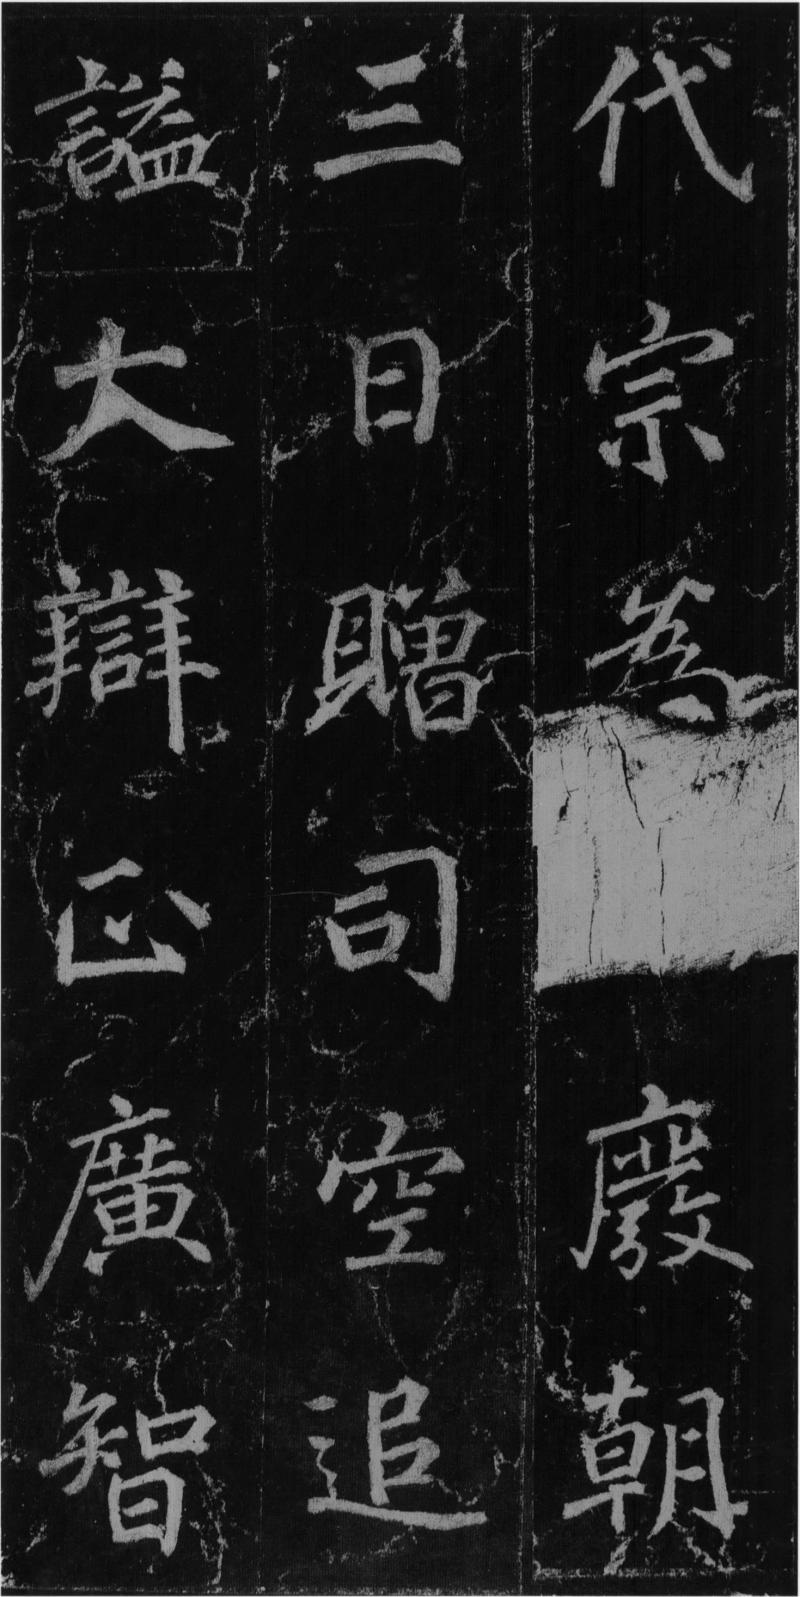 代宗為廢朝
三日贈司空追
謚大辯正廣智